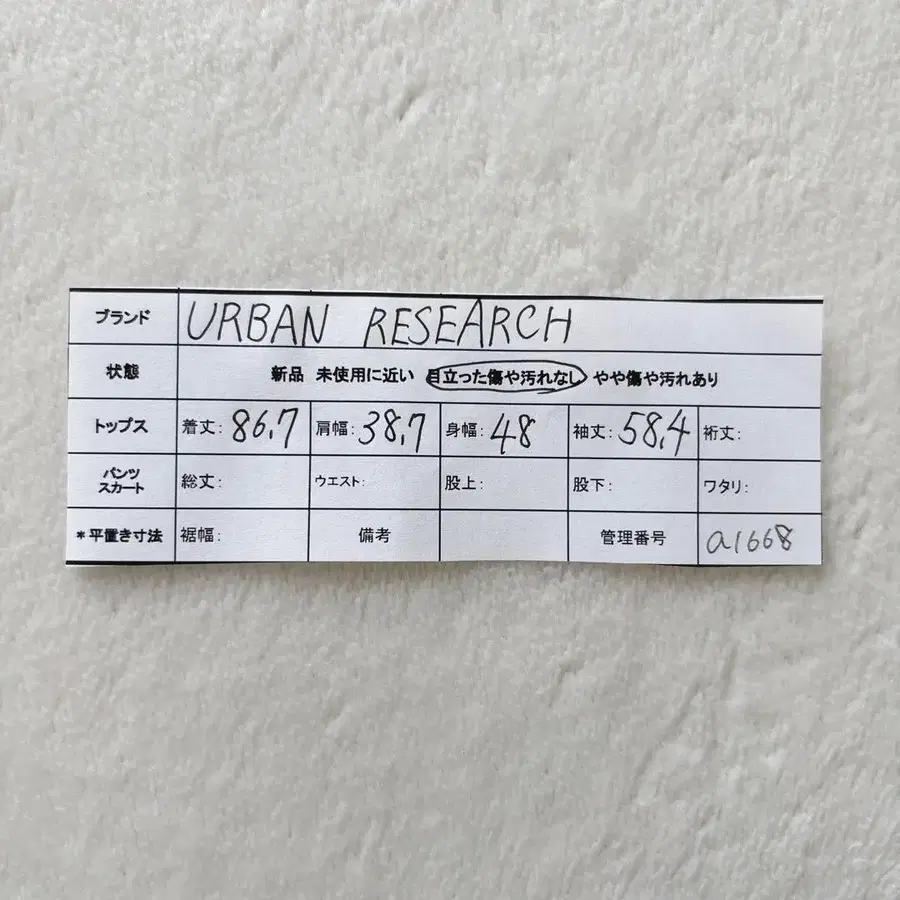 ブランド URBAN RESEARCH
状態 新品 未使用に近い 目立った傷や汚れなし やや傷や汚れあり
トップス 着丈: 86,7 肩幅: 38,7 身幅: 48 袖丈: 58,4 裄丈:
パンツ
スカート 総丈: ウエスト: 股上: 股下: ワタリ:
*平置き寸法 裾幅: 備考 管理番号 a1668